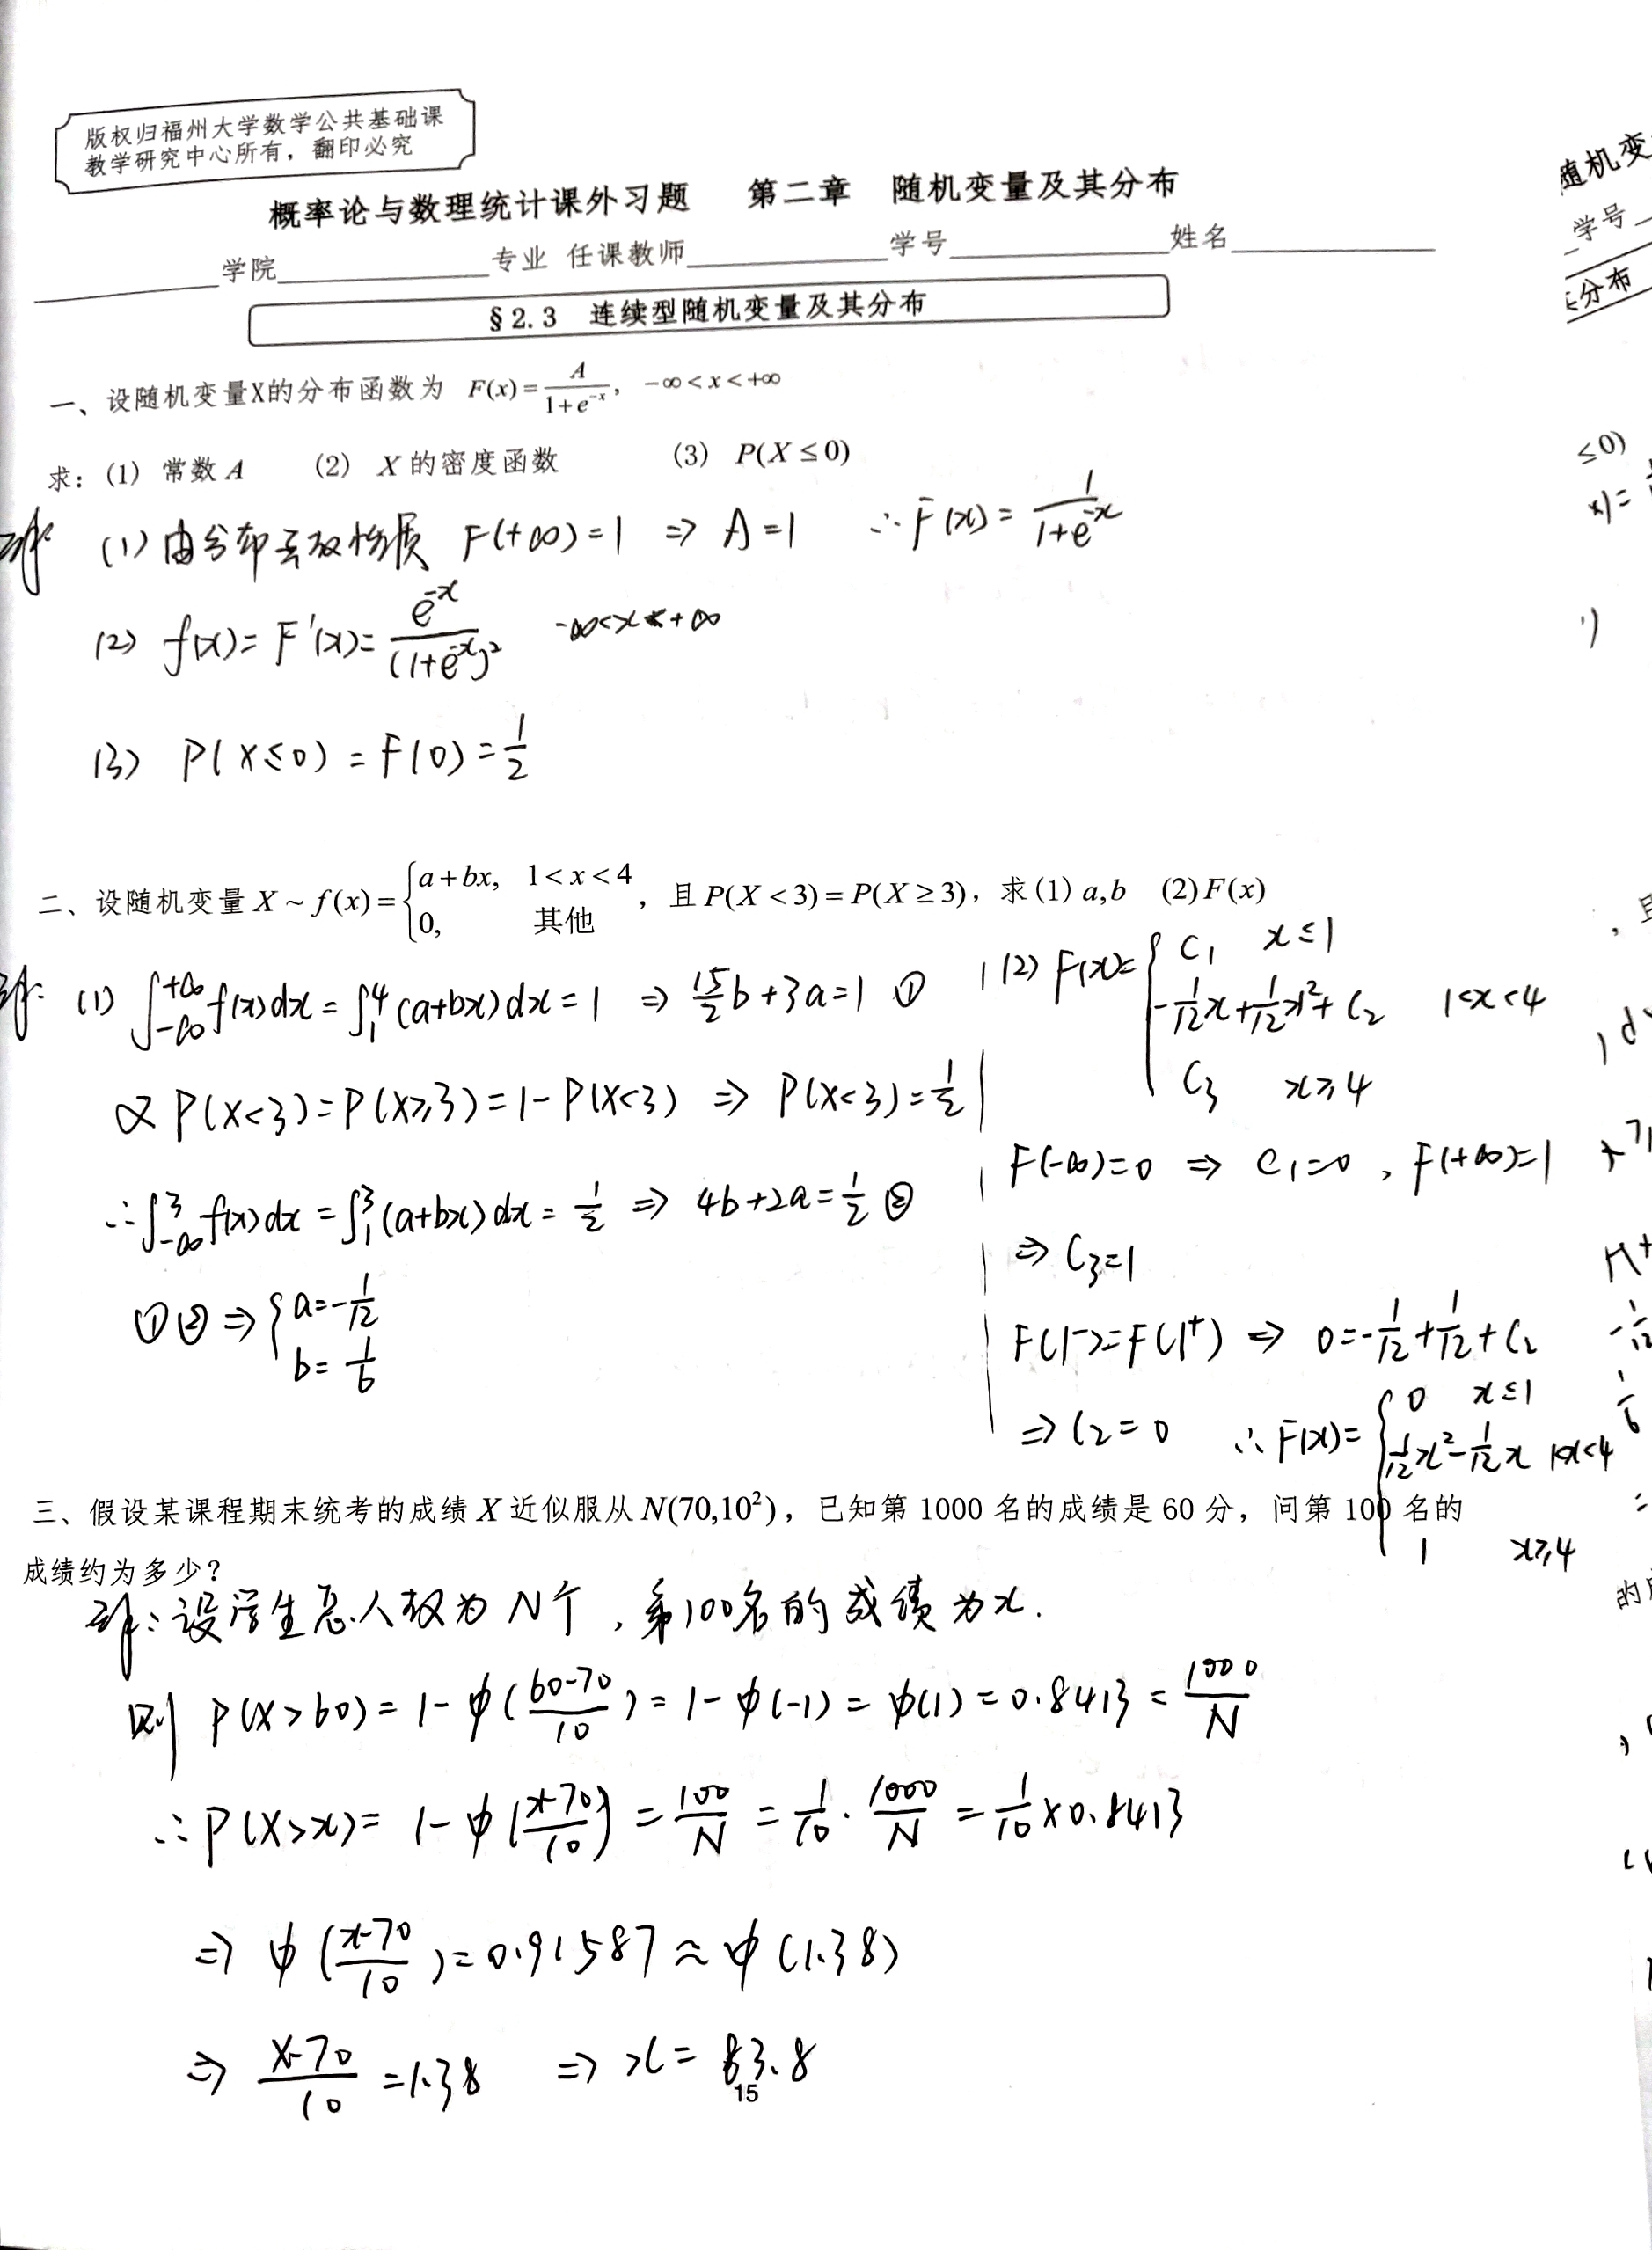 版权归福州大学数学公共基础课
教学研究中心所有，翻印必究
概率论与数理统计课外习题 第二章 随机变量及其分布
学院 专业 任课教师 学号 姓名
§2.3 连续型随机变量及其分布
一、设随机变量X的分布函数为 F(x)=A/(1+e^{-x}), -∞<x<+∞
求：(1) 常数A (2) X的密度函数 (3) P(X≤0)
解: (1) 由分布函数性质 F(+∞)=1 ⇒ A=1 ∴F(x)=1/(1+e^{-x})
(2) f(x)=F'(x)=e^{-x}/(1+e^{-x})² -∞<x<+∞
(3) P(X≤0)=F(0)=1/2
二、设随机变量 X~f(x)={a+bx, 1<x<4; 0, 其他，且P(X<3)=P(X≥3)，求(1) a,b (2) F(x)
解: (1) ∫_{-∞}^{+∞}f(x)dx=∫_1^4(a+bx)dx=1 ⇒ 15/2b+3a=1 ①
又 P(X<3)=P(X≥3)=1-P(X<3) ⇒ P(X<3)=1/2
∴∫_{-∞}^3f(x)dx=∫_1^3(a+bx)dx=1/2 ⇒ 4b+2a=1/2 ②
①② ⇒ {a=-1/12
b=1/6
(2) F(x)={C₁ x≤1
-1/12x+1/12x²+C₂ 1<x<4
C₃ x≥4
F(-∞)=0 ⇒ C₁=0, F(+∞)=1
⇒ C₃=1
F(1⁻)=F(1⁺) ⇒ 0=-1/12+1/12+C₂
⇒ C₂=0 ∴F(x)={0 x≤1
1/12x²-1/12x 1<x<4
1 x≥4
三、假设某课程期末统考的成绩X近似服从N(70,10²)，已知第1000名的成绩是60分，问第100名的
成绩约为多少？
解: 设学生总人数为N个，第100名的成绩为x.
则 P(X>60)=1-φ((60-70)/10)=1-φ(-1)=φ(1)=0.8413=1000/N
∴P(X>x)=1-φ((x-70)/10)=100/N=1/10·1000/N=1/10×0.8413
⇒ φ((x-70)/10)=0.91587≈φ(1.38)
⇒ (x-70)/10=1.38 ⇒ x=83.8
15
随机变
学号
分布
≤0)